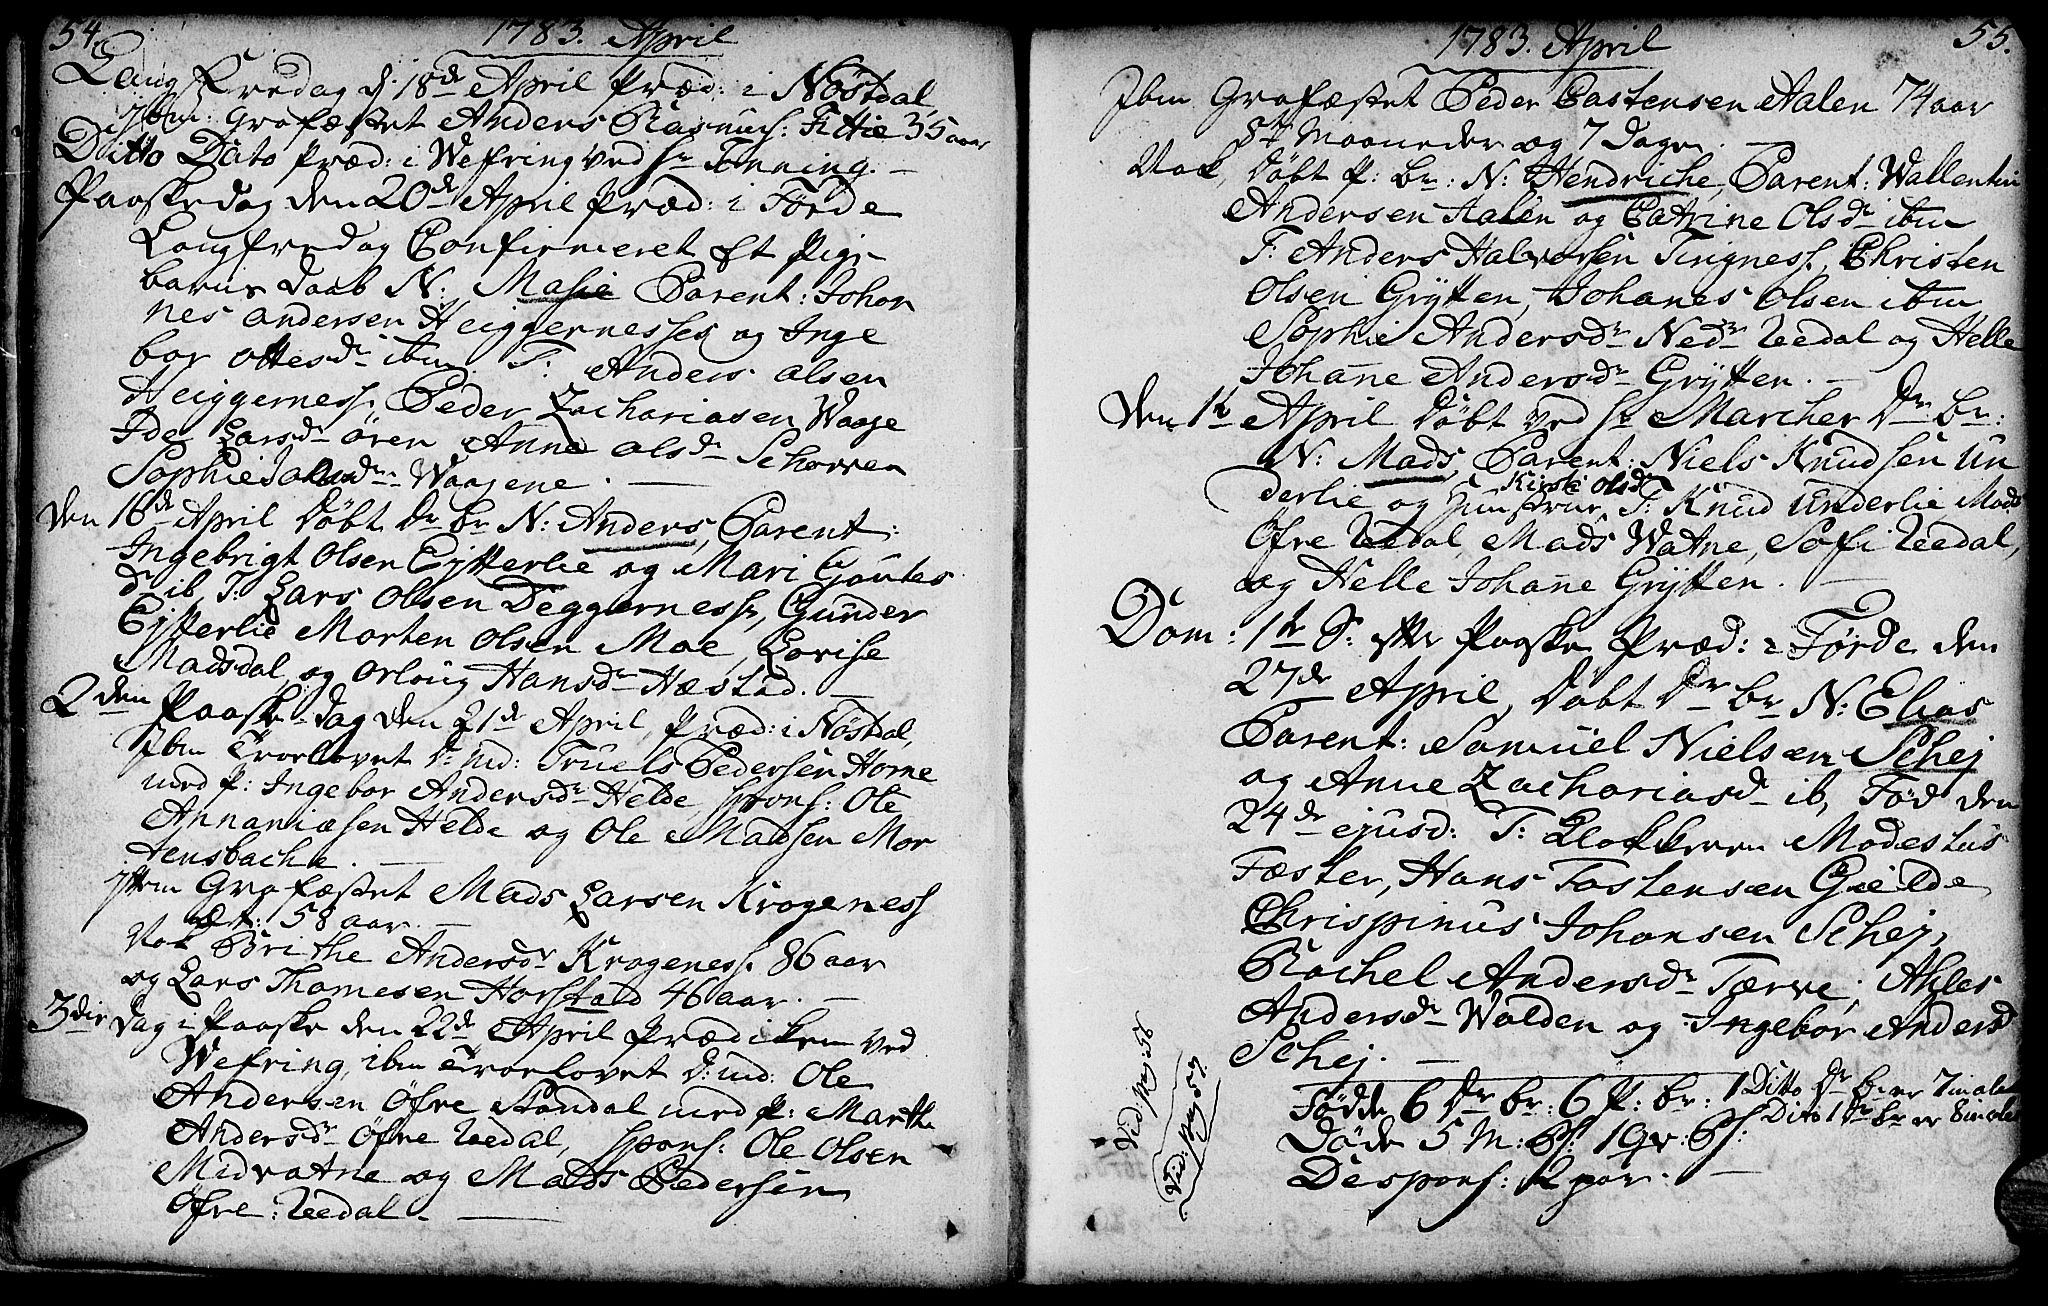 54.
1783. April
Lang Fredag d. 18de April Præd: i Nøstdal
Ibm: Grafæstet Anders Rasmus: Fitie 35 aar
Ditto Dato Præd: i Wefring ved Hr Tønning. -
Paaskedag den 20de April Præd: i Førde
Langfredag Confirmeret Et Pige
barns daab N: Masie Parent: Johan
nes Andersen Heiggernesses og Inge
bor Ottesdr ibm T: Anders Olsen
Heiggerness, Peder Zachariasen Waage
Ide Larsdr Øren Anne Olsdr Schorven
Sophie Waagene. -
Den 16de April Døbt Dr br N: Anders, Parent:
Ingebrigt Olsen Eytterlie og Mari Goutes
dr ib, T: Lars Olsen Deggerness, Gunder
Eytterlie Morten Olsen Moe, Lovise
Madsdal og Orloug Hansdr Hæstad. -
2den Paaske-dag den 21de April, Præd: i Nøstdal,
Ibm Trorlovet D: ud: Truels Pedersen Horne
med P: Ingebor Andersdr Helde Spons: Ole
Annaniæsen Helde og Ole Madsen Mor
tensbache. -
Item Grafæstet Mads Larsen Krogeness
æt: 58 aar. -
Nok Brithe Andersdr Krogeness 86 aar
og Lars Thomesen Horstad 46 aar. -
3die Dag i Paaske den 22de April Prædiken ved
Wefring, ibm Trorlovet D: ud: Ole
Andersen Øfre Standal med P: Marthe
Andersdr Øfre Uedal, Spons: Ole Olsen
Midvatne og Mads Pedersen
Øfre: Uedal. -
55.
1783. April
Ibm Grafæstet Peder Castensen Aalen 74 aar
Maaneder og 7 Dage. -
Nok, Døbt P: Br: N: Hendriche, Parent: Wallentin
Andersen Aalen og Catrine Olsdr ibm
T: Anders Halvorsen Tingness, Christen
Olsen Grytten, Johanes Olsen ibm
Sophie Andersdr Nedr Uedal og Helle
Johane Andersdr Grytten. -
Den 1te April Døbt ved Hr Marcher Dr br:
N: Mads, Parent: Niels Knudsen Un
Kirsti Olsdr
derlie og Hustrue, T: Knud Underlie Mads
Øfre Uedal, Mads Watne, Sofi Uedal,
og Helle Johane Grytten. -
Dom: 1te S: efter Paaske Præd: i Førde den
27de April, Døbt Dr br N: Elias
Parent: Samuel Nielsen Schej
og Anne Zachariasdr ib, Fød den
24de ejusd: T: Klokkeren Modestus
Fæster, Hans Tostensen Gielde
Chrispinus Johansen Schej,
Rachel Andersdr Tærve, Ahles
Andersdr Walden og Ingebor Andersd
Schej. -
Fødde 6 Dr br: 6 P: br: 1 Ditto Dr br er 7 male
Ditto 1 Dr br er 8 male
Døde 5 M: Ps: 1 Qv: Ps:
Despons: 2 par. -
Vid Pag: 56
Vid: Pag 57.